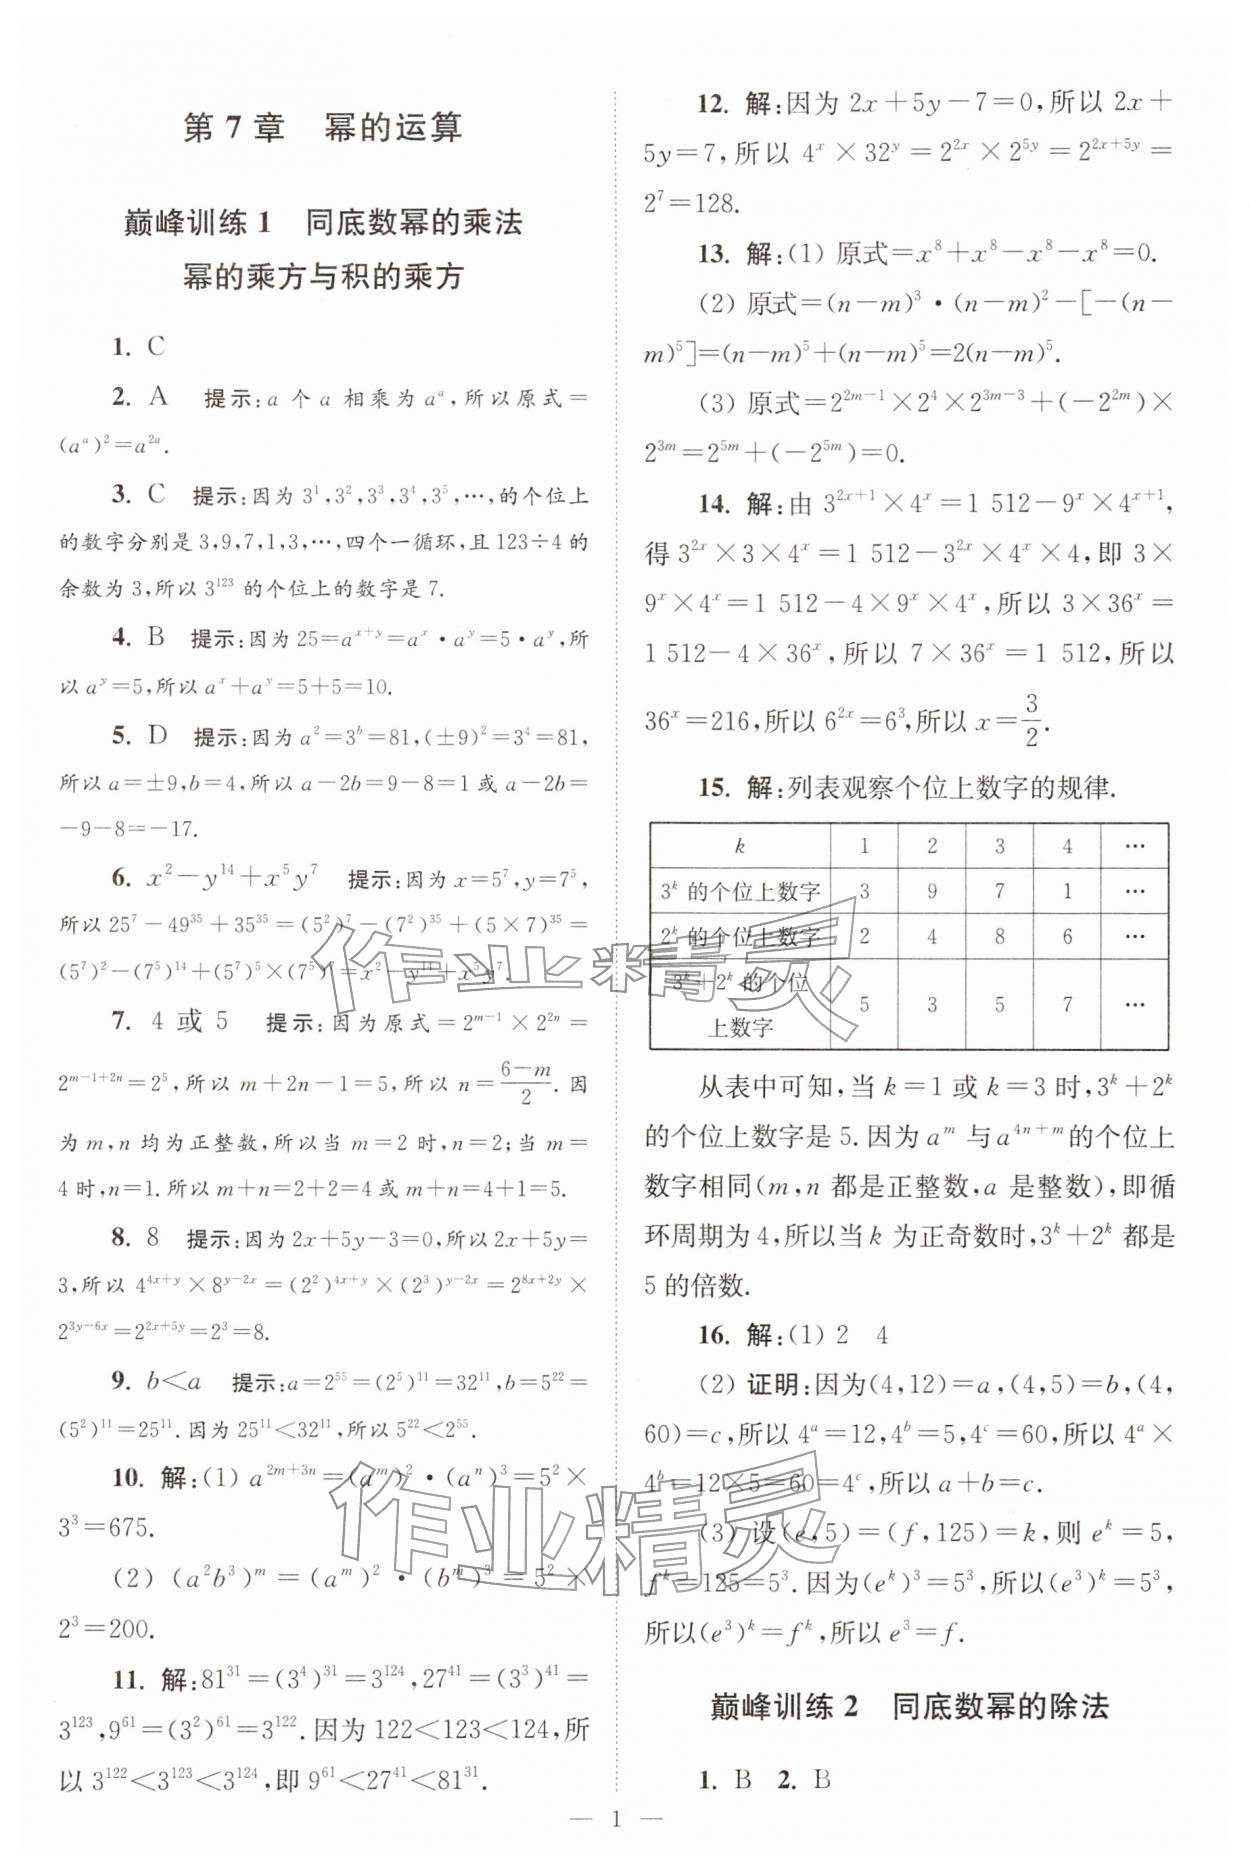 第 7 章　幂的运算
巅峰训练 1　同底数幂的乘法
幂的乘方与积的乘方
1. C
2. A　提示:a 个 a 相乘为 aᵃ,所以原式=
(aᵃ)²=a²ᵃ.
3. C　提示:因为 3¹,3²,3³,3⁴,3⁵,…,的个位上
的数字分别是 3,9,7,1,3,…,四个一循环,且 123÷4 的
余数为 3,所以 3¹²³ 的个位上的数字是 7.
4. B　提示:因为 25=aˣ⁺ʸ=aˣ·aʸ=5·aʸ,所
以 aʸ=5,所以 aˣ+aʸ=5+5=10.
5. D　提示:因为 a²=3ᵇ=81,(±9)²=3⁴=81,
所以 a=±9,b=4,所以 a-2b=9-8=1 或 a-2b=
-9-8=-17.
6. x²-y¹⁴+x⁵y⁷　提示:因为 x=5⁷,y=7⁵,
所以 25⁷-49³⁵+35³⁵=(5²)⁷-(7²)³⁵+(5×7)³⁵=
(5⁷)²-(7⁵)¹⁴+(5⁷)⁵×(7⁵)⁷=x²-y¹⁴+x⁵y⁷.
7. 4 或 5　提示:因为原式=2ᵐ⁻¹×2²ⁿ=
2ᵐ⁻¹⁺²ⁿ=2⁵,所以 m+2n-1=5,所以 n=(6-m)/2. 因
为 m,n 均为正整数,所以当 m=2 时,n=2;当 m=
4 时,n=1. 所以 m+n=2+2=4 或 m+n=4+1=5.
8. 8　提示:因为 2x+5y-3=0,所以 2x+5y=
3,所以 4⁴ˣ⁺ʸ×8ʸ⁻²ˣ=(2²)⁴ˣ⁺ʸ×(2³)ʸ⁻²ˣ=2⁸ˣ⁺²ʸ×
2³ʸ⁻⁶ˣ=2²ˣ⁺⁵ʸ=2³=8.
9. b<a　提示:a=2⁵⁵=(2⁵)¹¹=32¹¹,b=5²²=
(5²)¹¹=25¹¹. 因为 25¹¹<32¹¹,所以 5²²<2⁵⁵.
10. 解:(1) a²ᵐ⁺³ⁿ=(aᵐ)²·(aⁿ)³=5²×
3³=675.
(2) (a²b³)ᵐ=(aᵐ)²·(bᵐ)³=5²×
2³=200.
11. 解:81³¹=(3⁴)³¹=3¹²⁴,27⁴¹=(3³)⁴¹=
3¹²³,9⁶¹=(3²)⁶¹=3¹²². 因为 122<123<124,所
以 3¹²²<3¹²³<3¹²⁴,即 9⁶¹<27⁴¹<81³¹.
12. 解:因为 2x+5y-7=0,所以 2x+
5y=7,所以 4ˣ×32ʸ=2²ˣ×2⁵ʸ=2²ˣ⁺⁵ʸ=
2⁷=128.
13. 解:(1) 原式=x⁸+x⁸-x⁸-x⁸=0.
(2) 原式=(n-m)³·(n-m)²-[-(n-
m)⁵]=(n-m)⁵+(n-m)⁵=2(n-m)⁵.
(3) 原式=2²ᵐ⁻¹×2⁴×2³ᵐ⁻³+(-2²ᵐ)×
2³ᵐ=2⁵ᵐ+(-2⁵ᵐ)=0.
14. 解:由 3²ˣ⁺¹×4ˣ=1 512-9ˣ×4ˣ⁺¹,
得 3²ˣ×3×4ˣ=1 512-3²ˣ×4ˣ×4,即 3×
9ˣ×4ˣ=1 512-4×9ˣ×4ˣ,所以 3×36ˣ=
1 512-4×36ˣ,所以 7×36ˣ=1 512,所以
36ˣ=216,所以 6²ˣ=6³,所以 x=3/2.
15. 解:列表观察个位上数字的规律.
k 1 2 3 4 …
3ᵏ 的个位上数字 3 9 7 1 …
2ᵏ 的个位上数字 2 4 8 6 …
3ᵏ+2ᵏ 的个位
上数字 5 3 5 7 …
从表中可知,当 k=1 或 k=3 时,3ᵏ+2ᵏ
的个位上数字是 5. 因为 aᵐ 与 a⁴ⁿ⁺ᵐ 的个位上
数字相同(m,n 都是正整数,a 是整数),即循
环周期为 4,所以当 k 为正奇数时,3ᵏ+2ᵏ 都是
5 的倍数.
16. 解:(1) 2　4
(2) 证明:因为(4,12)=a,(4,5)=b,(4,
60)=c,所以 4ᵃ=12,4ᵇ=5,4ᶜ=60,所以 4ᵃ×
4ᵇ=12×5=60=4ᶜ,所以 a+b=c.
(3) 设(e,5)=(f,125)=k,则 eᵏ=5,
fᵏ=125=5³. 因为(eᵏ)³=5³,所以(e³)ᵏ=5³,
所以(e³)ᵏ=fᵏ,所以 e³=f.
巅峰训练 2　同底数幂的除法
1. B　2. B
— 1 —
作业精灵
作业精灵